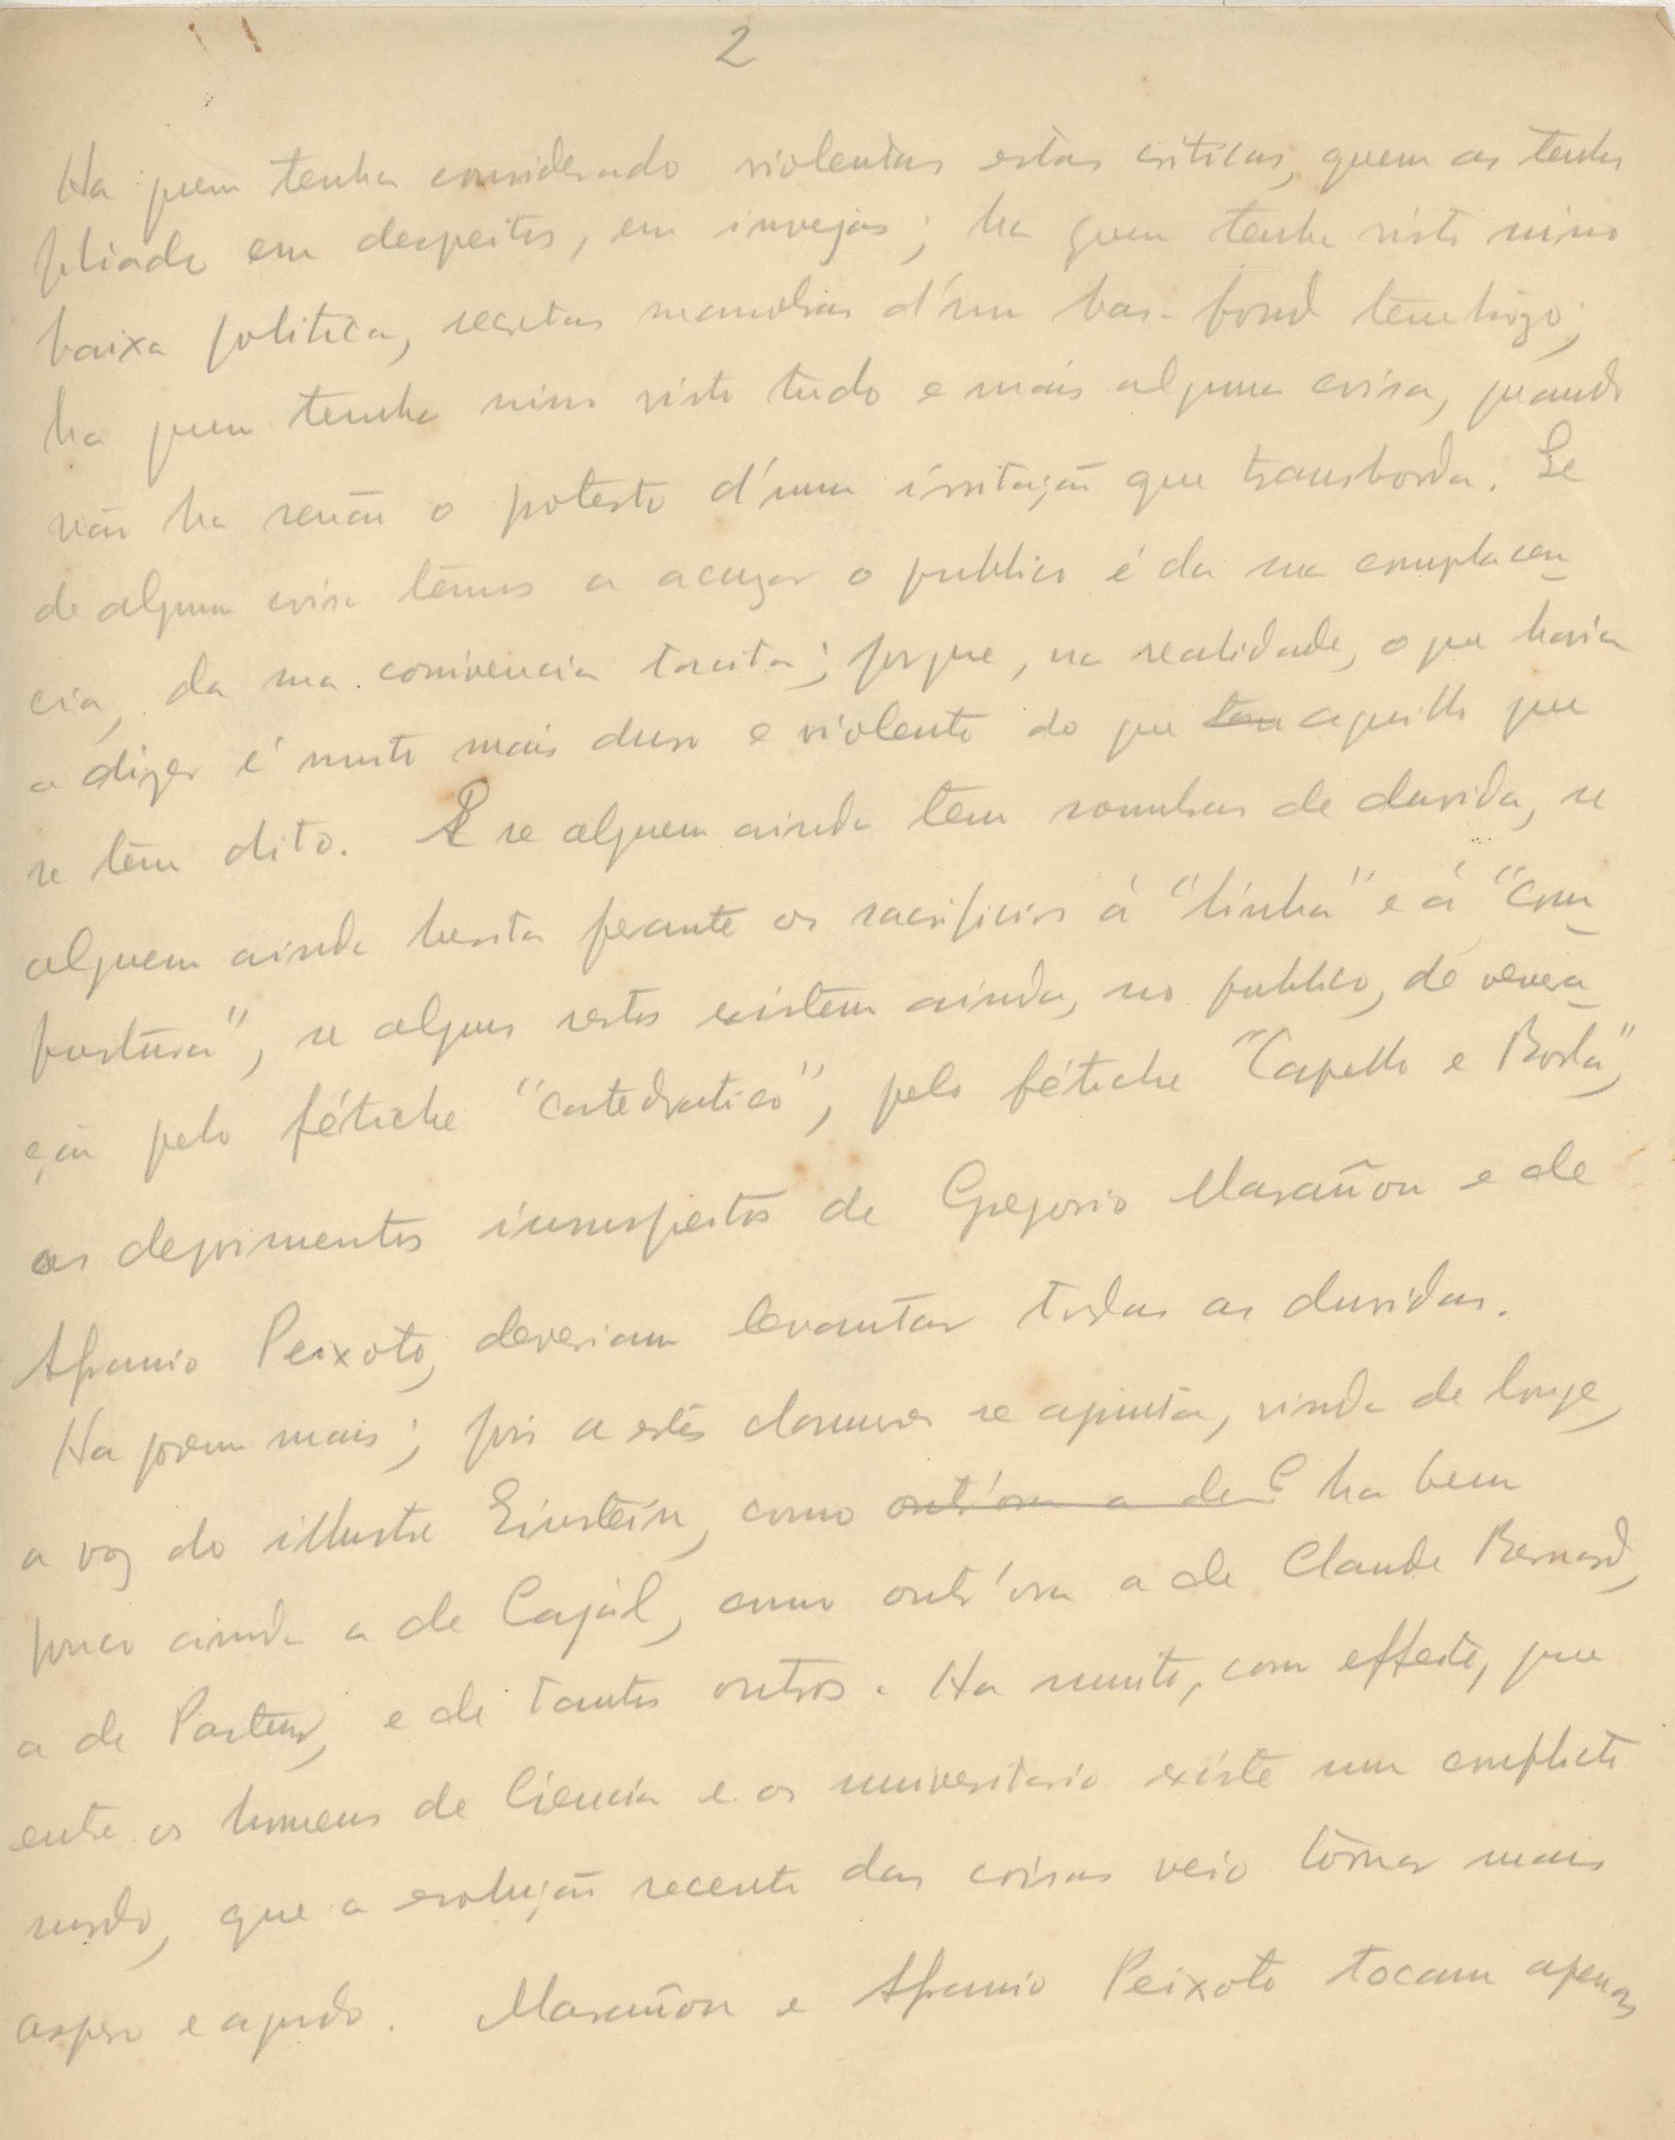 2
Ha quem tenha considerado violentas estas criticas, quem as tenha
filiado em despeitos, em invejas; ha quem tenha visto nisso
baixa politica, secretas manobras d'um bas-fond
ha quem tenha nisso visto tudo e mais alguma coisa, quando
não ha senão o protesto d'uma irritação que transborda. Se
de alguma coisa têmos a acuzar o publico é da sua complacen
cia, da sua conivencia tacita; porque, na realidade, o que havia
a dizer é muito mais duro e violento do que aquillo que
se têm dito. E se alguem ainda tem sombras de duvida, se
alguem ainda hesita perante os sacrificios á "linha" e á "com
postura", se alguns restos existem ainda, no publico, de venera
ção pelo fétiche "catedratico", pelo fétiche "Capello e Borla",
os depoimentos insuspeitos de Gregorio Marañon e de
Afranio Peixoto, deveriam levantar todas as duvidas.
Ha porem mais; pois a estes clamores se ajunta, vinda de longe,
a voz do illustre Einstein, como outr'ora a de ha bem
pouco ainda a de Cajál, como outr'ora a de Claude Bernard,
a de Pasteur, e de tantos outros. Ha muito, com effeito, que
entre os homens de Ciencia e os universitario existe um conflicto
surdo, que a evolução recente das coisas veio tornar mais
aspero e agudo. Marañon e Afranio Peixoto tocam apenas